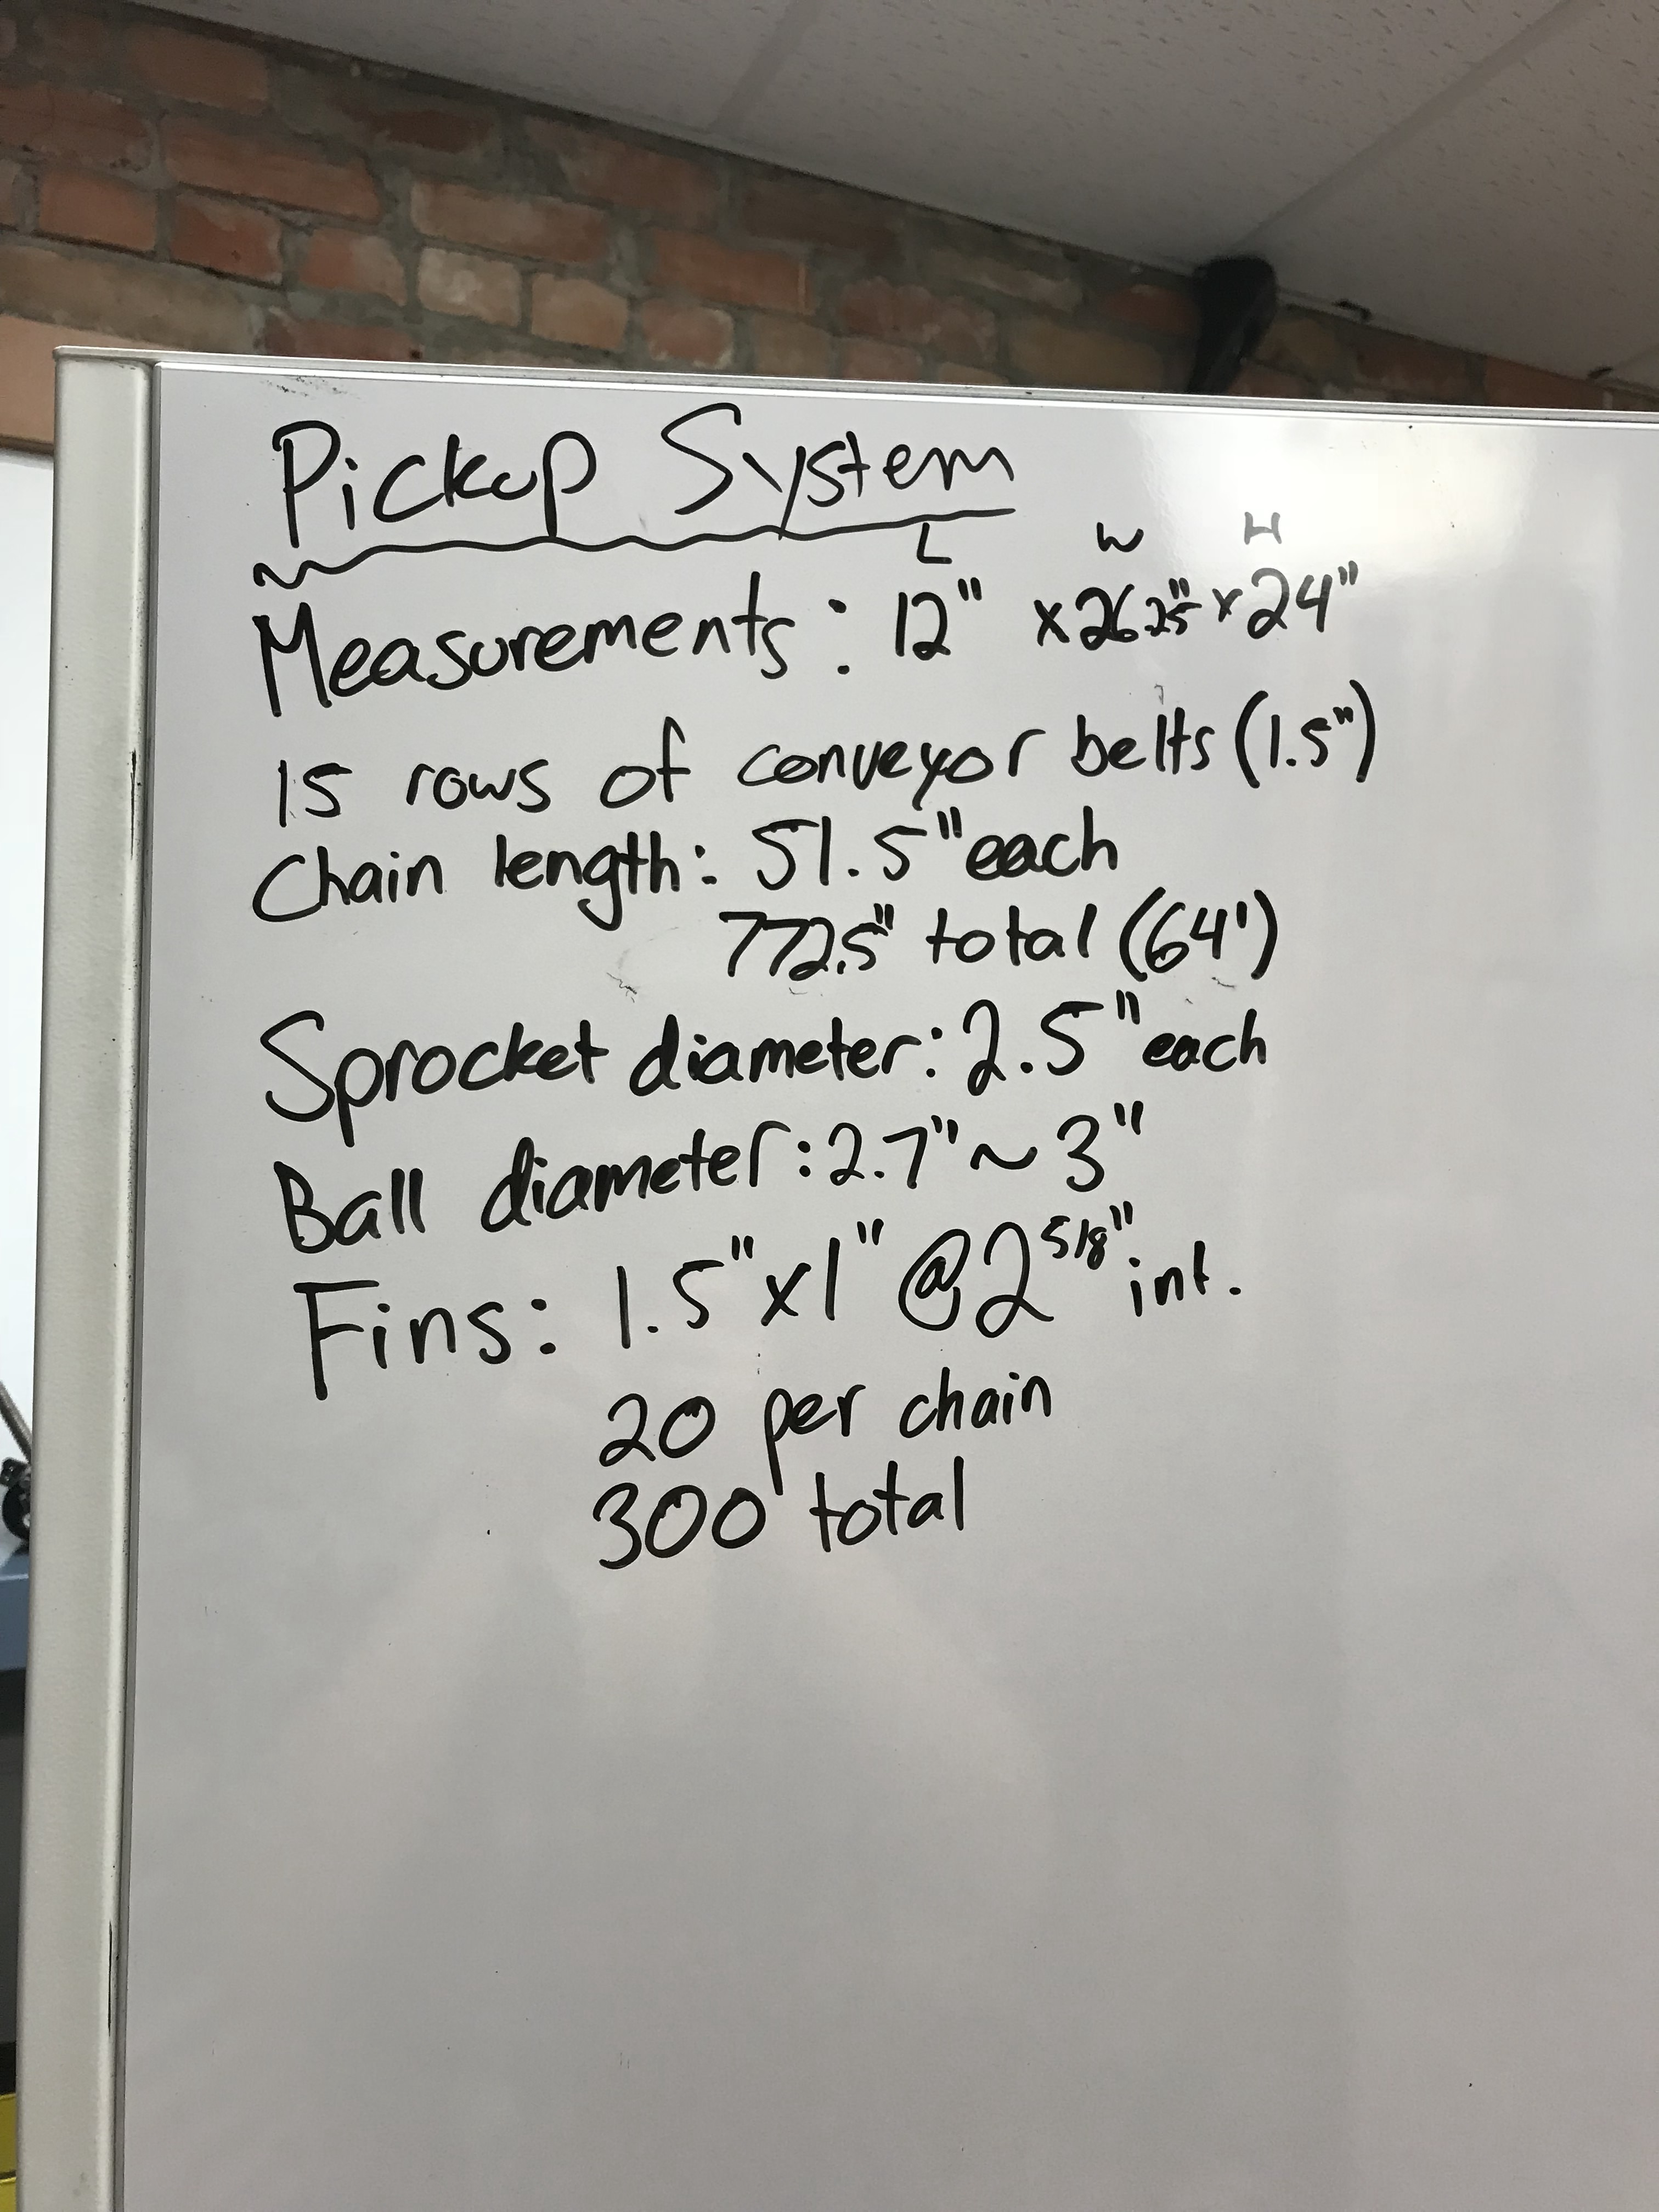 Pickup System
L W H
Measurements: 12" x 26.25" x 24"
15 rows of conveyor belts (1.5")
Chain length: 51.5" each
772.5" total (64')
Sprocket diameter: 2.5" each
Ball diameter: 2.7" ~ 3"
Fins: 1.5" x 1" @ 2 5/8" int.
20 per chain
300 total